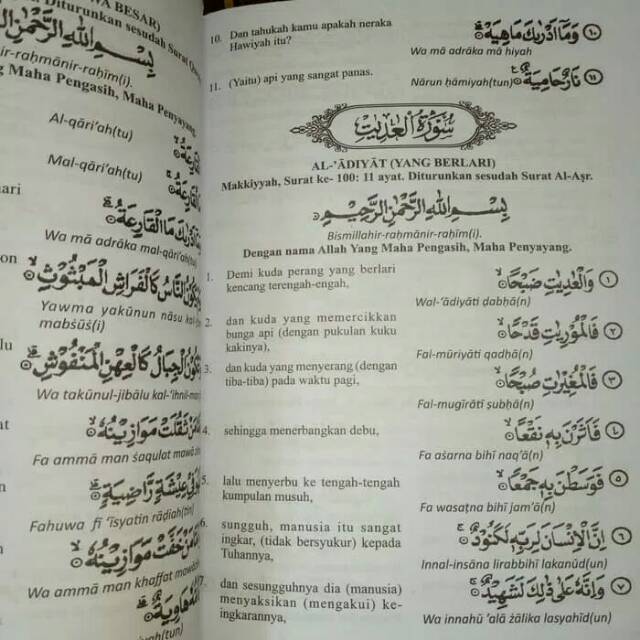 WA BESAR)
. Diturunkan sesudah Surat
بِسْمِ اللّٰهِ الرَّحْمٰنِ الرَّحِيْمِ
ir-raḥmānir-raḥīm(i).
Maha Pengasih, Maha Penyayang.
اَلْقَارِعَةُ
Al-qāri'ah(tu)
مَا الْقَارِعَةُ
Mal-qāri'ah(tu)
اَدْرٰىكَ مَا الْقَارِعَةُ
Wa mā adrāka mal-qāri'ah(tu)
يَكُوْنُ النَّاسُ كَالْفَرَاشِ الْمَبْثُوْثِ
Yawma yakūnun nāsu
mabṡūṡ(i)
تَكُوْنُ الْجِبَالُ كَالْعِهْنِ الْمَنْفُوْشِ
Wa takūnul-jibālu kal-'ihnil-
مَنْ ثَقُلَتْ مَوَازِيْنُهٗ
Fa ammā man ṡaqulat
فِيْ عِيْشَةٍ رَّاضِيَةٍ
Fahuwa fī 'īsyatin rāḍiah(tin)
مَنْ خَفَّتْ مَوَازِيْنُهٗ
Wa ammā man khaffat
هَاوِيَةٌ
iyah(tun)
10. Dan tahukah kamu apakah neraka
Hawiyah itu?
وَمَآ اَدْرٰىكَ مَاهِيَهْ ۝١٠
Wa mā adrāka mā hiyah
11. (Yaitu) api yang sangat panas.
نَارٌ حَامِيَةٌ ۝١١
Nārun ḥāmiyah(tun)
سُوْرَةُ الْعٰدِيٰتِ
AL-'ĀDIYĀT (YANG BERLARI)
Makkiyyah, Surat ke- 100: 11 ayat. Diturunkan sesudah Surat Al-Aṣr.
بِسْمِ اللّٰهِ الرَّحْمٰنِ الرَّحِيْمِ
Bismillahir-raḥmānir-raḥīm(i).
Dengan nama Allah Yang Maha Pengasih, Maha Penyayang.
1. Demi kuda perang yang berlari
kencang terengah-engah,
وَالْعٰدِيٰتِ ضَبْحًا ۝١
Wal-'ādiyāti ḍabḥā(n)
2. dan kuda yang memercikkan
bunga api (dengan pukulan kuku
kakinya),
فَالْمُوْرِيٰتِ قَدْحًا ۝٢
Fal-mūriyāti qadḥā(n)
3. dan kuda yang menyerang (dengan
tiba-tiba) pada waktu pagi,
فَالْمُغِيْرٰتِ صُبْحًا ۝٣
Fal-mugīrāti ṣubḥā(n)
4. sehingga menerbangkan debu,
فَاَثَرْنَ بِهٖ نَقْعًا ۝٤
Fa aṡarna bihī naq'ā(n)
5. lalu menyerbu ke tengah-tengah
kumpulan musuh,
فَوَسَطْنَ بِهٖ جَمْعًا ۝٥
Fa wasaṭna bihī jam'ā(n)
6. sungguh, manusia itu sangat
ingkar, (tidak bersyukur) kepada
Tuhannya,
اِنَّ الْاِنْسَانَ لِرَبِّهٖ لَكَنُوْدٌ ۝٦
Innal-insāna lirabbihī lakanūd(un)
7. dan sesungguhnya dia (manusia)
menyaksikan (mengakui) ke-
ingkarannya,
وَاِنَّهٗ عَلٰى ذٰلِكَ لَشَهِيْدٌ ۝٧
Wa innahū 'alā żālika lasyahīd(un)